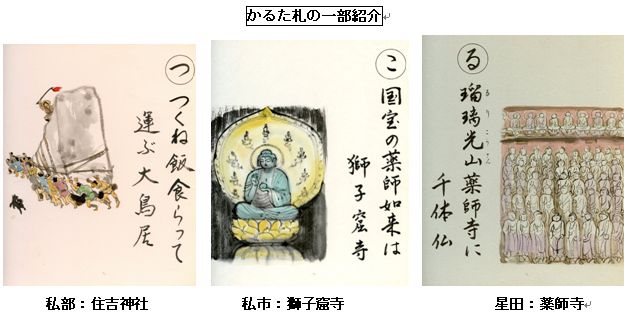 かるた札の一部紹介
つ
つくね飯食らって
運ぶ大鳥居
こ
国宝の薬師如来は
獅子窟寺
る
瑠璃光山薬師寺に
るりこうざん
千体仏
私部：住吉神社
私市：獅子窟寺
星田：薬師寺